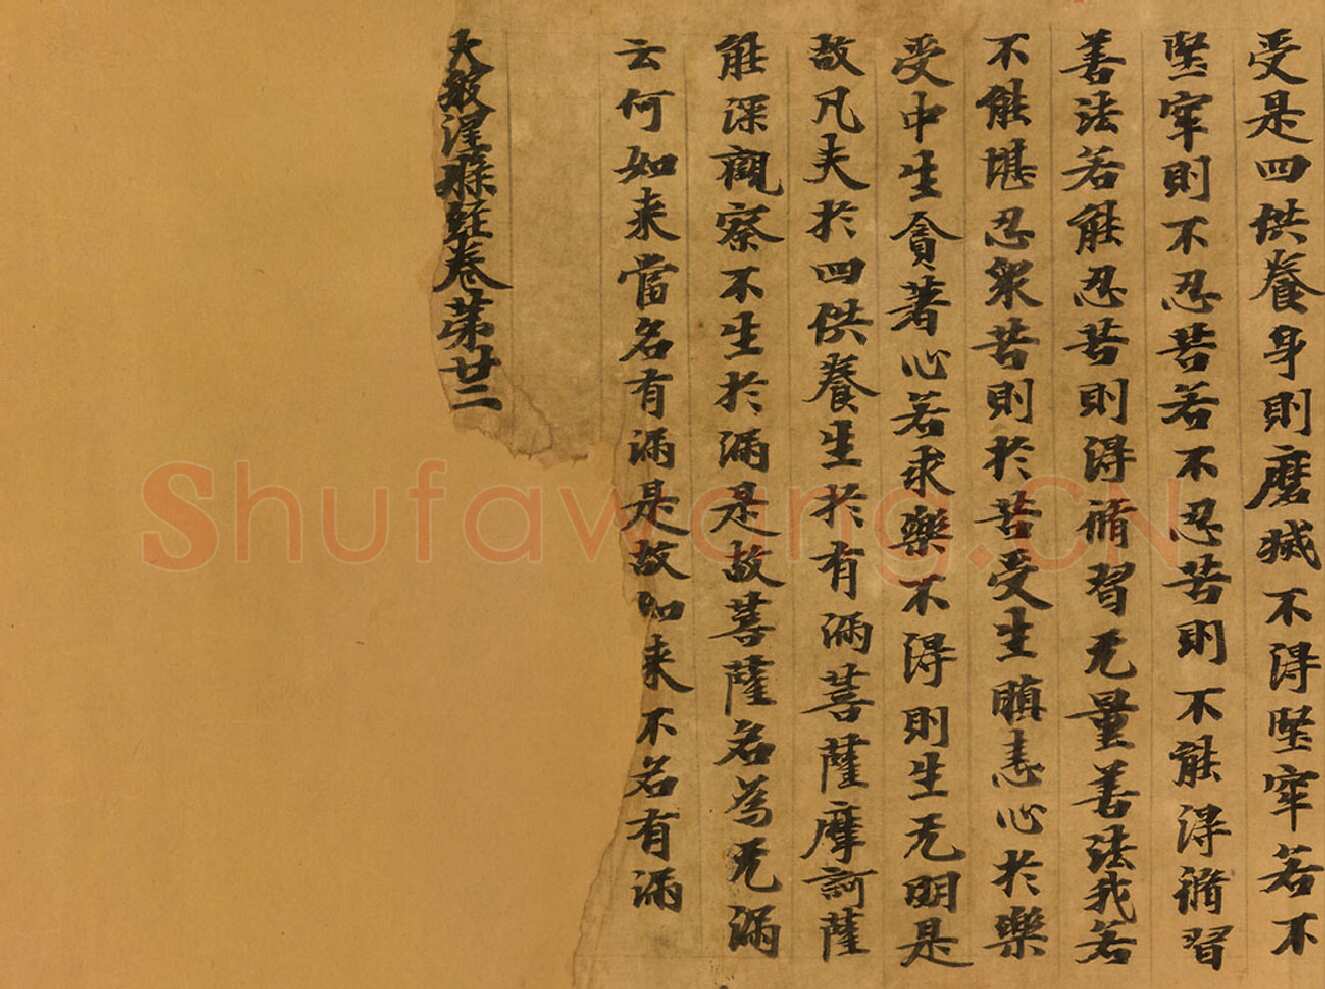 受是四供養身則磨滅不得堅牢若不
堅牢則不忍苦若不忍苦則不能得脩習
善法若能忍苦則得脩習无量善法我若
不能堪忍衆苦則於苦受生瞋恚心於樂
受中生貪著心若求樂不得則生无明是
故凡夫於四供養生於有漏菩薩摩訶薩
能深觀察不生於漏是故菩薩名為无漏
云何如来當名有漏是故如来不名有漏
大般涅槃經卷苐廿二
Shufawang.CN